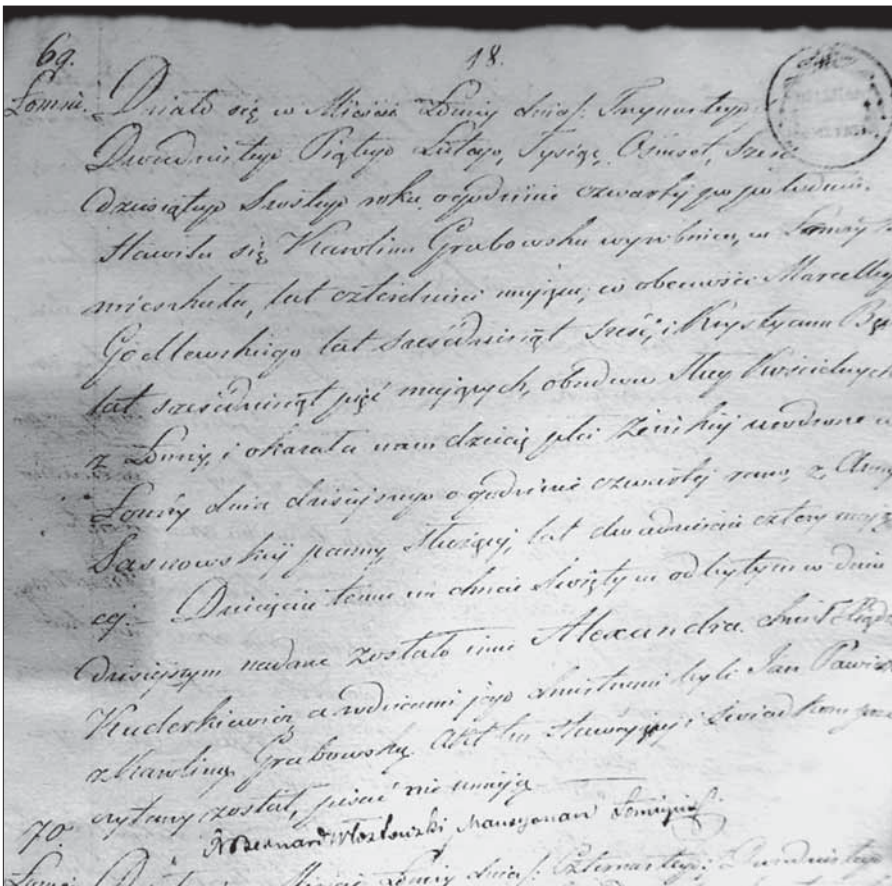 69. 18.
Łomża. Działo się w Mieście Łomży dnia Trzynastego
Dwudziestego Piątego Lutego, Tysiąc Ośmset, Sześć
dziesiątego Szóstego roku, o godzinie czwartej po południu.
Stawiła się Karolina Grabowska wyrobnica, w Łomży
mieszkała, lat czterdzieści mająca, w obecności Marcellego
Godlewskiego lat sześćdziesiąt sześć, i Krystyana
lat sześćdziesiąt pięć mających, obudwu Sług Kościelnych
z Łomży, i okazała nam dziecię płci żeńskiej urodzone w
Łomży dnia dzisiejszego o godzinie czwartej rano, z Anny
Sasnowskiej panny, służącej, lat dwadzieścia cztery mają
cej. – Dziecięciu temu na chrzcie Świętym odbytym w dniu
dzisiejszym nadane zostało imie Alexandra.
Kuderkiewicz, a rodzicami jego chrzestnemi byli Jan
z Karoliną Grabowską. Akt ten stawającej i świadkom
czytany został, pisać nie umieją
70. X Bernard Mansyonarz Łomżyński
Działo się w Mieście Łomży dnia Czternastego; Dwudziestego